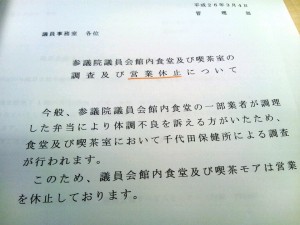 平成26年3月4日
管理部
議員事務室 各位
参議院議員会館内食堂及び喫茶室の
調査及び営業休止について
今般、参議院議員会館内食堂の一部業者が調理
した弁当により体調不良を訴える方がいたため、
食堂及び喫茶室において千代田保健所による調査
が行われます。
このため、議員会館内食堂及び喫茶モアは営業
を休止しております。